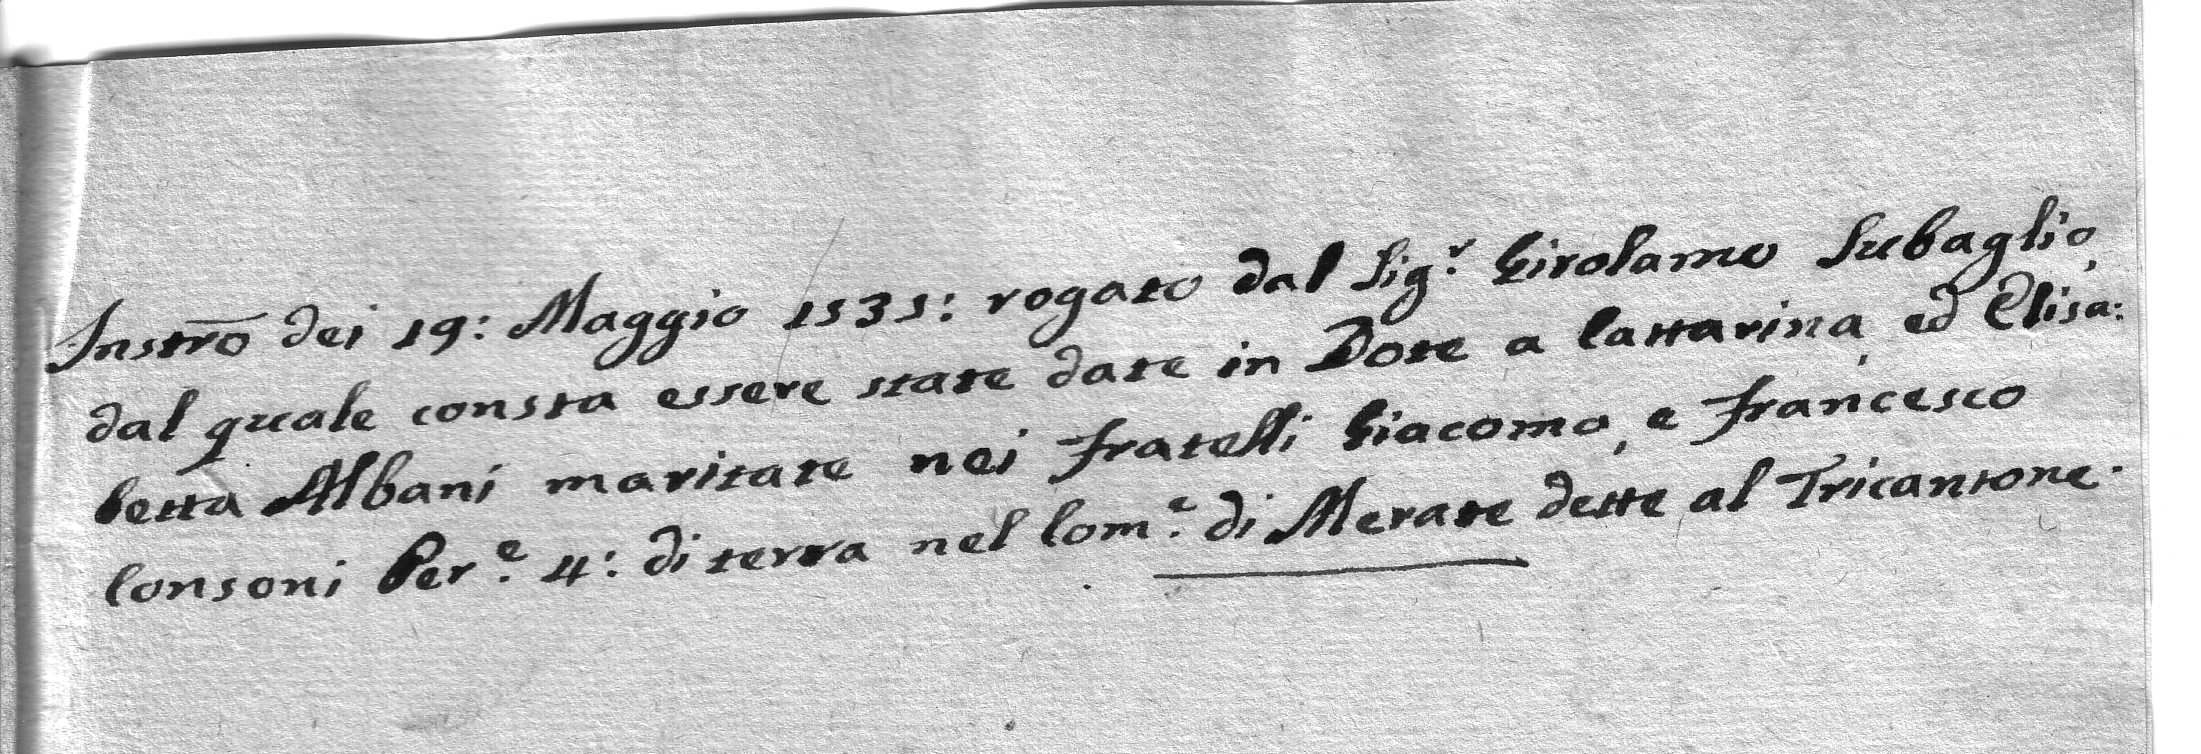 Instrõ dei 19: Maggio 1535: rogato dal Sig.r Girolamo Subaglio,
dal quale consta essere state date in Dote a Cattarina, ed Elisa:
betta Albani maritate nei fratelli Giacomo, e Francesco
Consoni Per.e 4: di terra nel Com.e di Merate dette al Tricantone.